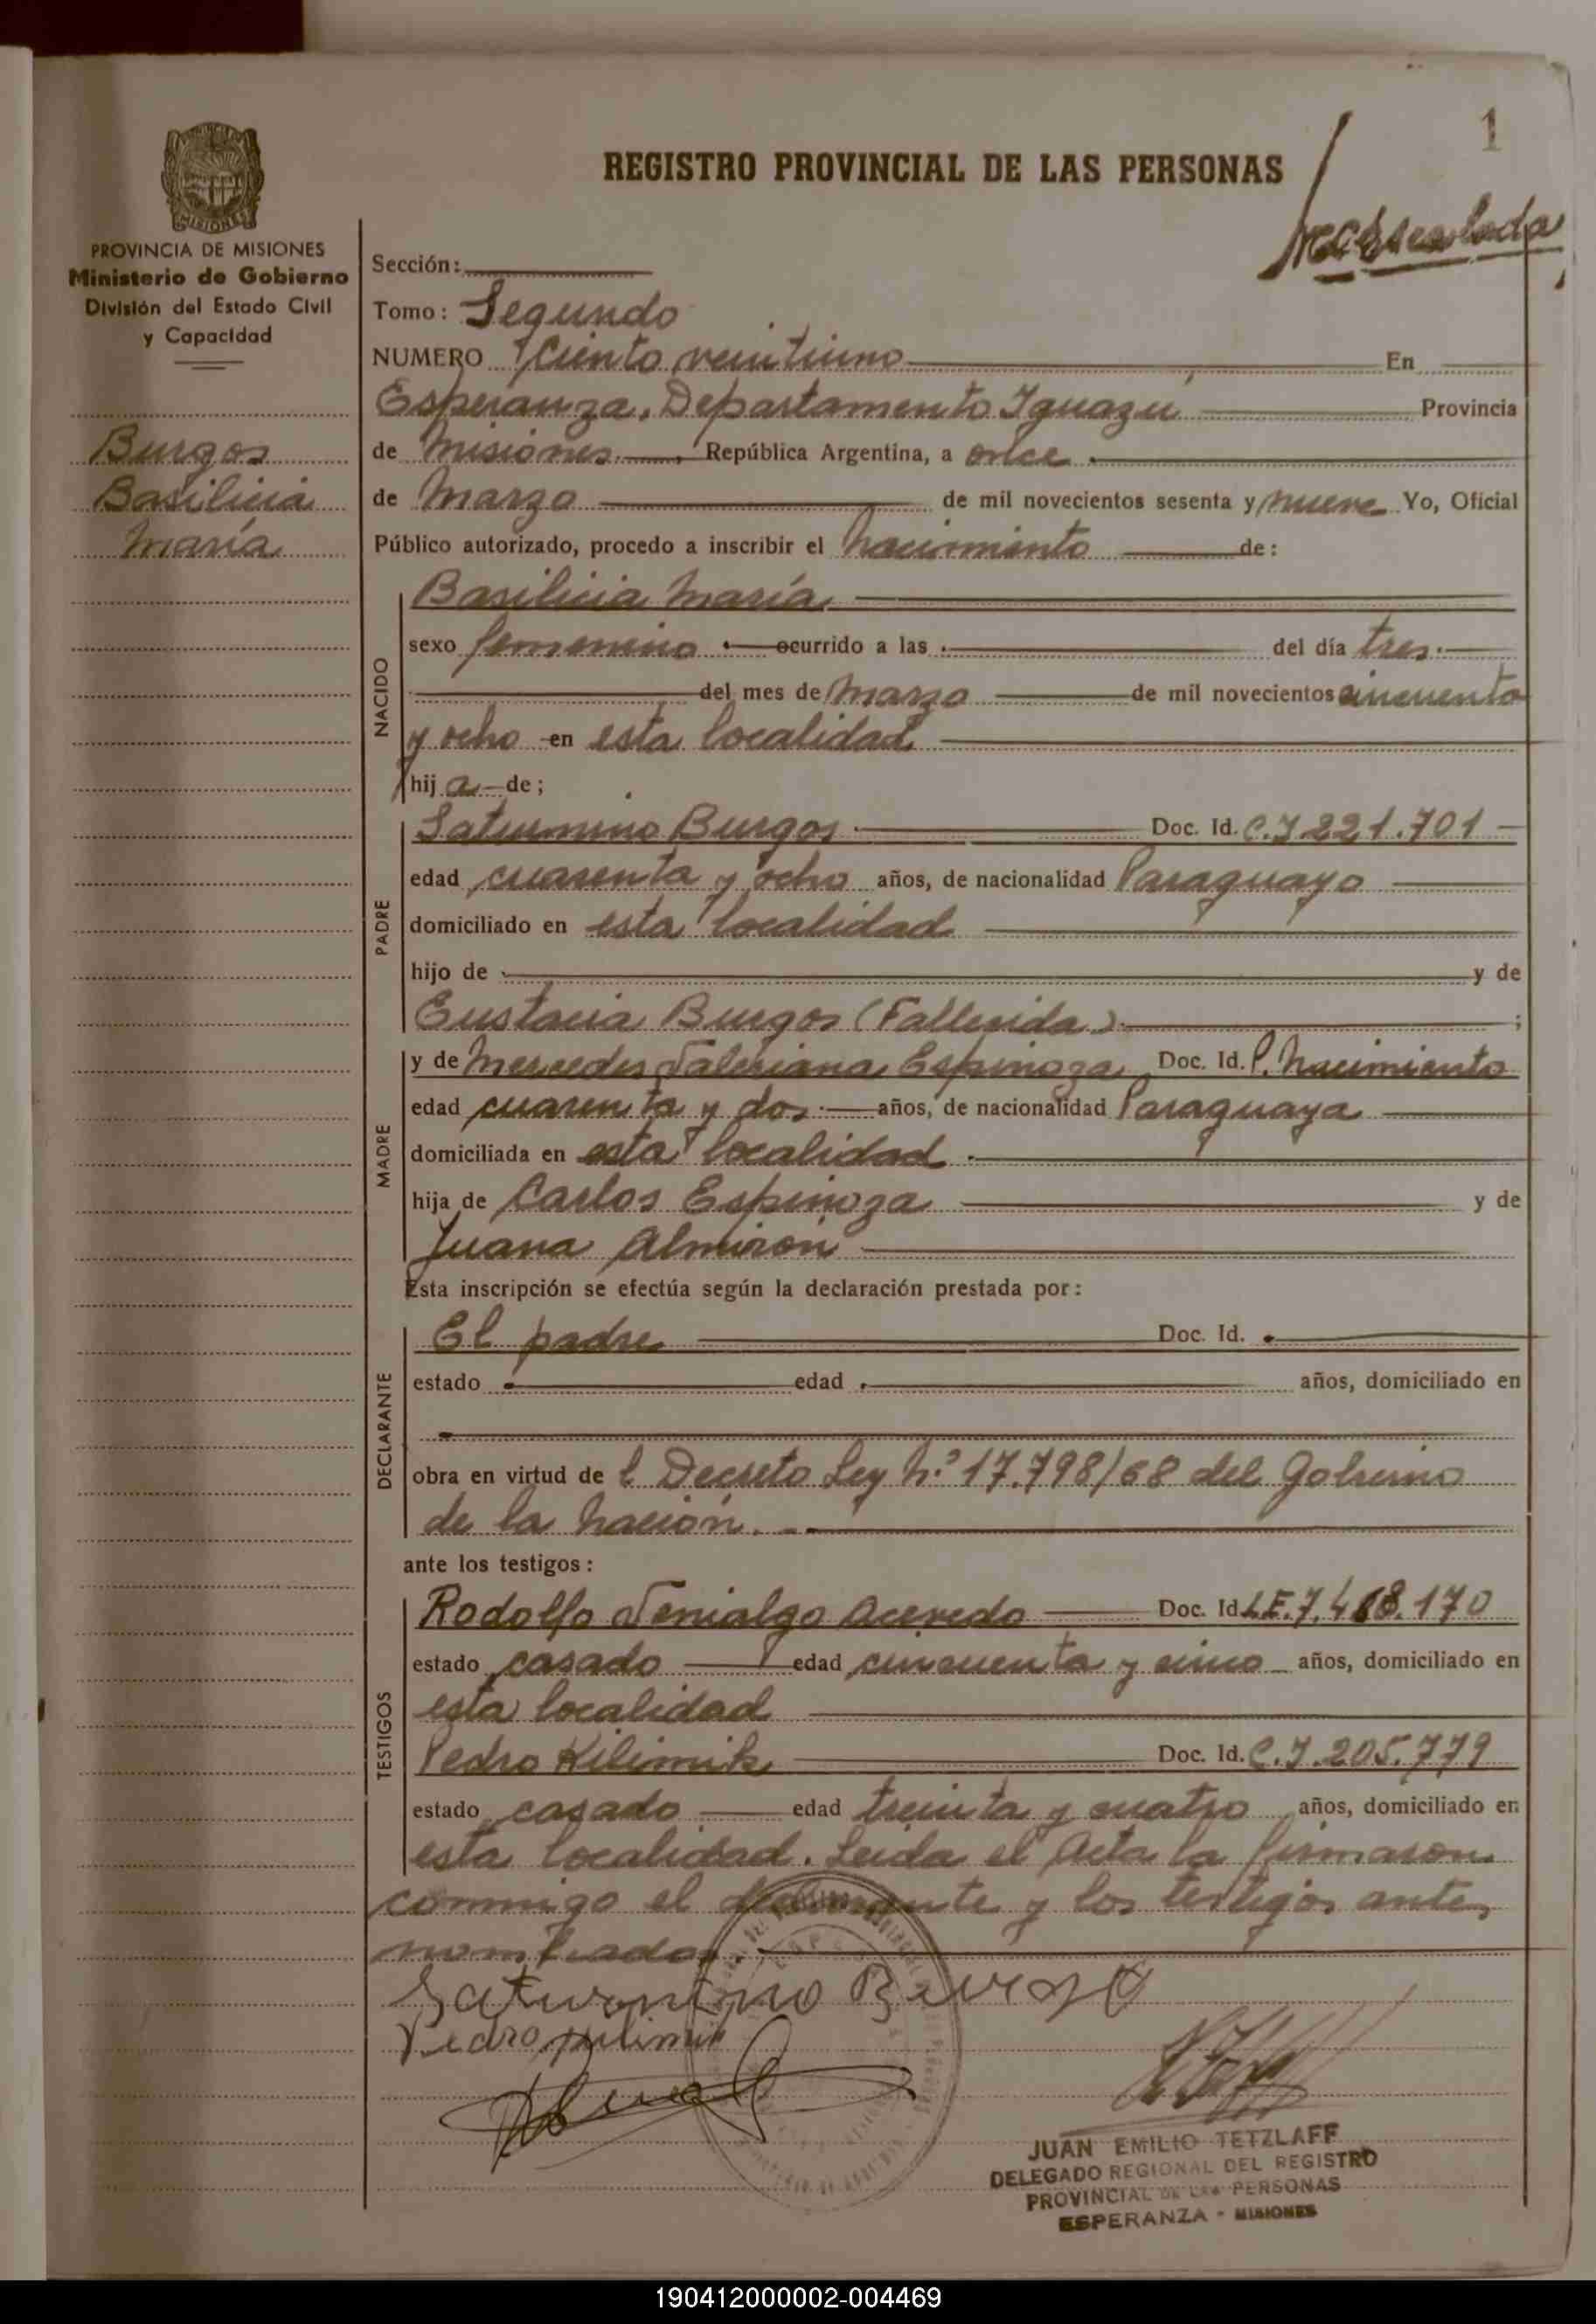 1
REGISTRO PROVINCIAL DE LAS PERSONAS
MISIONES
PROVINCIA DE MISIONES
Ministerio de Gobierno
División del Estado Civil
y Capacidad
Burgos
Basilicia
María
Sección:
Tomo: Segundo
NUMERO Ciento veintiuno En
Esperanza, Departamento Iguazú Provincia
de Misiones, República Argentina, a once
de Marzo de mil novecientos sesenta y nueve Yo, Oficial
Público autorizado, procedo a inscribir el nacimiento de:
Basilicia María
NACIDO
sexo femenino ocurrido a las del día tres
del mes de Marzo de mil novecientos cincuenta
y ocho en esta localidad
hija de;
PADRE
Saturnino Burgos Doc. Id. C.I 221.701
edad cuarenta y ocho años, de nacionalidad Paraguayo
domiciliado en esta localidad
hijo de y de
Eustacia Burgos (Fallecida) ;
MADRE
y de Mercedes Valeriana Espinoza Doc. Id. P. Nacimiento
edad cuarenta y dos años, de nacionalidad Paraguaya
domiciliada en esta localidad
hija de Carlos Espinoza y de
Juana Almirón
Esta inscripción se efectúa según la declaración prestada por:
DECLARANTE
El padre Doc. Id.
estado edad años, domiciliado en
obra en virtud de l Decreto Ley N.º 17.798/68 del Gobierno
de la Nación.
ante los testigos:
TESTIGOS
Rodolfo Acevedo Doc. Id L.E. 7.468.170
estado casado edad cincuenta y cinco años, domiciliado en
esta localidad
Pedro Kilimik Doc. Id. C.I. 205.779
estado casado edad treinta y cuatro años, domiciliado en
esta localidad. Leida el Acta la firmaron
conmigo el declarante y los testigos ante
nombrados
Saturnino Burgo
Pedro
JUAN EMILIO TETZLAFF
DELEGADO REGIONAL DEL REGISTRO
PROVINCIAL DE LAS PERSONAS
ESPERANZA - MISIONES
190412000002-004469